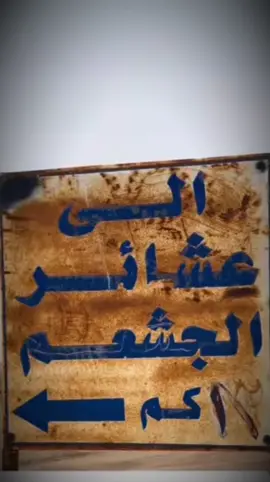 الى
عشائر
الجشعم
كم